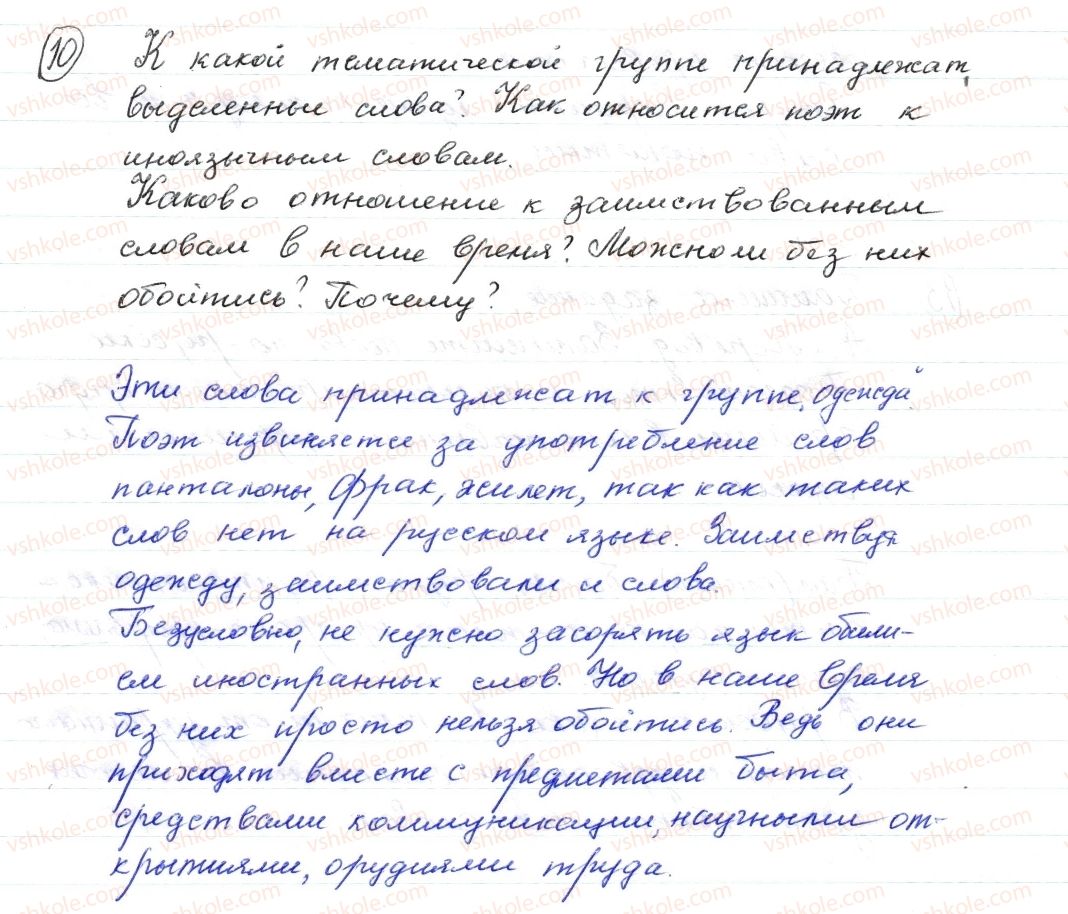 10 К какой тематической группе принадлежат
выделенные слова? Как относится поэт к
иноязычным словам.
Каково отношение к заимствованным
словам в наше время? Можно ли без них
обойтись? Почему?
Эти слова принадлежат к группе „Одежда"
Поэт извиняется за употребление слов
панталоны, фрак, жилет, так как таких
слов нет на русском языке. Заимствуя
одежду, заимствовали и слова.
Безусловно, не нужно засорять язык обили-
ем иностранных слов. Но в наше время
без них просто нельзя обойтись. Ведь они
приходят вместе с предметами быта,
средствами коммуникации, научными от-
крытиями, орудиями труда.
vshkole.com